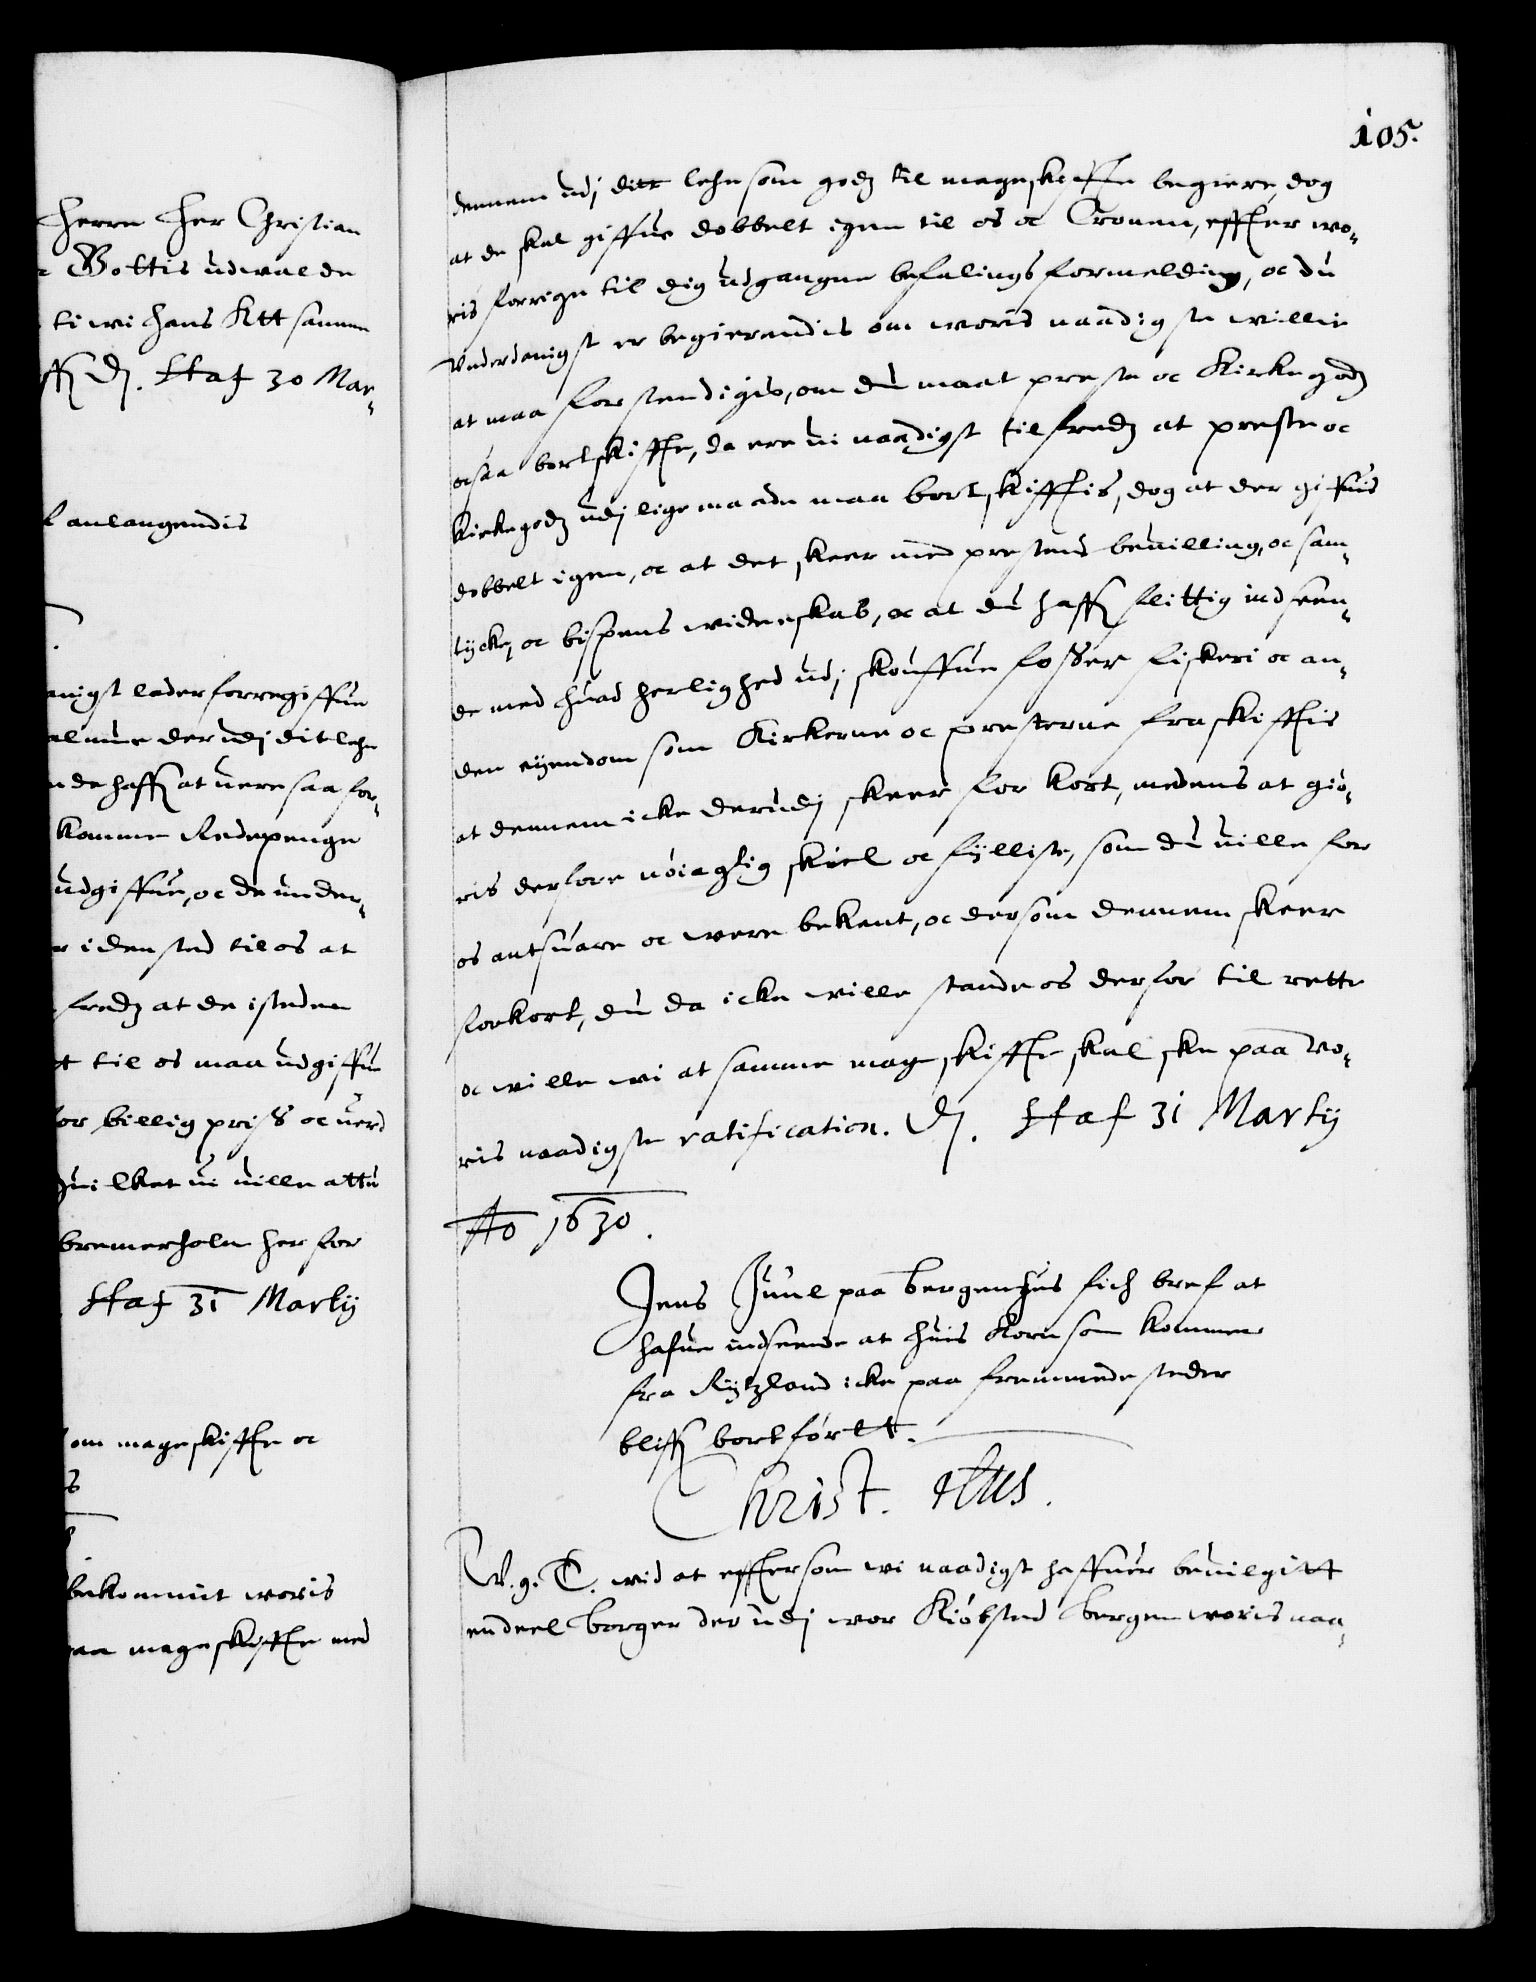 Herre Her Christian
Gottis udwalde
ti wi hans Ktt samme
ff. Dj. Haf 30 Mar-
anlangendis
nigst lader forregiffue
almue der udj dit lehn
de haff at uere saa for-
komme Redepenge
udgiffue, oc de under-
i den sted til os at
fredz at de i steden
til os maa udgiffue
for billig priss oc uerd
huilket ui uille attu
bremerholm her for
Haf 31 Martij
om mageskiffte oc
bekommit woris
paa mageskiffte med
105.
dennem udj ditt lehn som godz til mageskiffte begiere, dog
at de skal giffue dobbelt igen til os oc Cronen, effter wo-
ris forrige til dig udgangne befalings formelding, oc du
Underdanigst er begierendis om woris naadigste willie
at maa forstendigis, om du maat preste oc Kirkegodz
ocsaa bortskiffte, da ere ui naadigst tilfredz at preste oc
Kirkegodz udj lige maade maa bortskifftis, dog at der giffuis
dobbelt igen, oc at det skeer med prestens beuilling, oc sam-
tycke, oc bispens wideskab, oc at du haff flittig indseen-
de med huad herlighed udj skouffue fosser fiskeri oc an-
den eyendom som Kirkerne oc presterne fraskifftis
at dennem icke derudj skeer for kort, medens at giø-
ris derfore nøiagtig skiel oc fylliste, som du uille for
os antsuare oc were bekent, oc dersom dennem skeer
forkort, du da icke wille stande os derfor til rette
oc wille wi at samme mageskiffte skal ske paa wo-
ris naadigste ratification. Dj. Haf 31 Martij
Ao 1630.
Jens Juul paa bergenhus fich bref at
hafue indseende at huis Korn som kommer
fra Rytzland icke paa fremmede steder
bliff bortførtt.
Christ. 4tus.
W. g. T. wid at efftersom wi naadigst haffuer beuilgitt
endeel borger der udj wor Kiøbsted bergen woris naa-